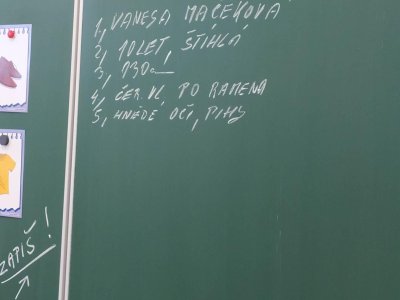 1, VANESA MACEKOVÁ
2, 10 LET, ŠTÍHLÁ
3, 130cm
4, ČER. VL, PO RAMENA
5, HNĚDÉ OČI, PIHY
ZAPIŠ!